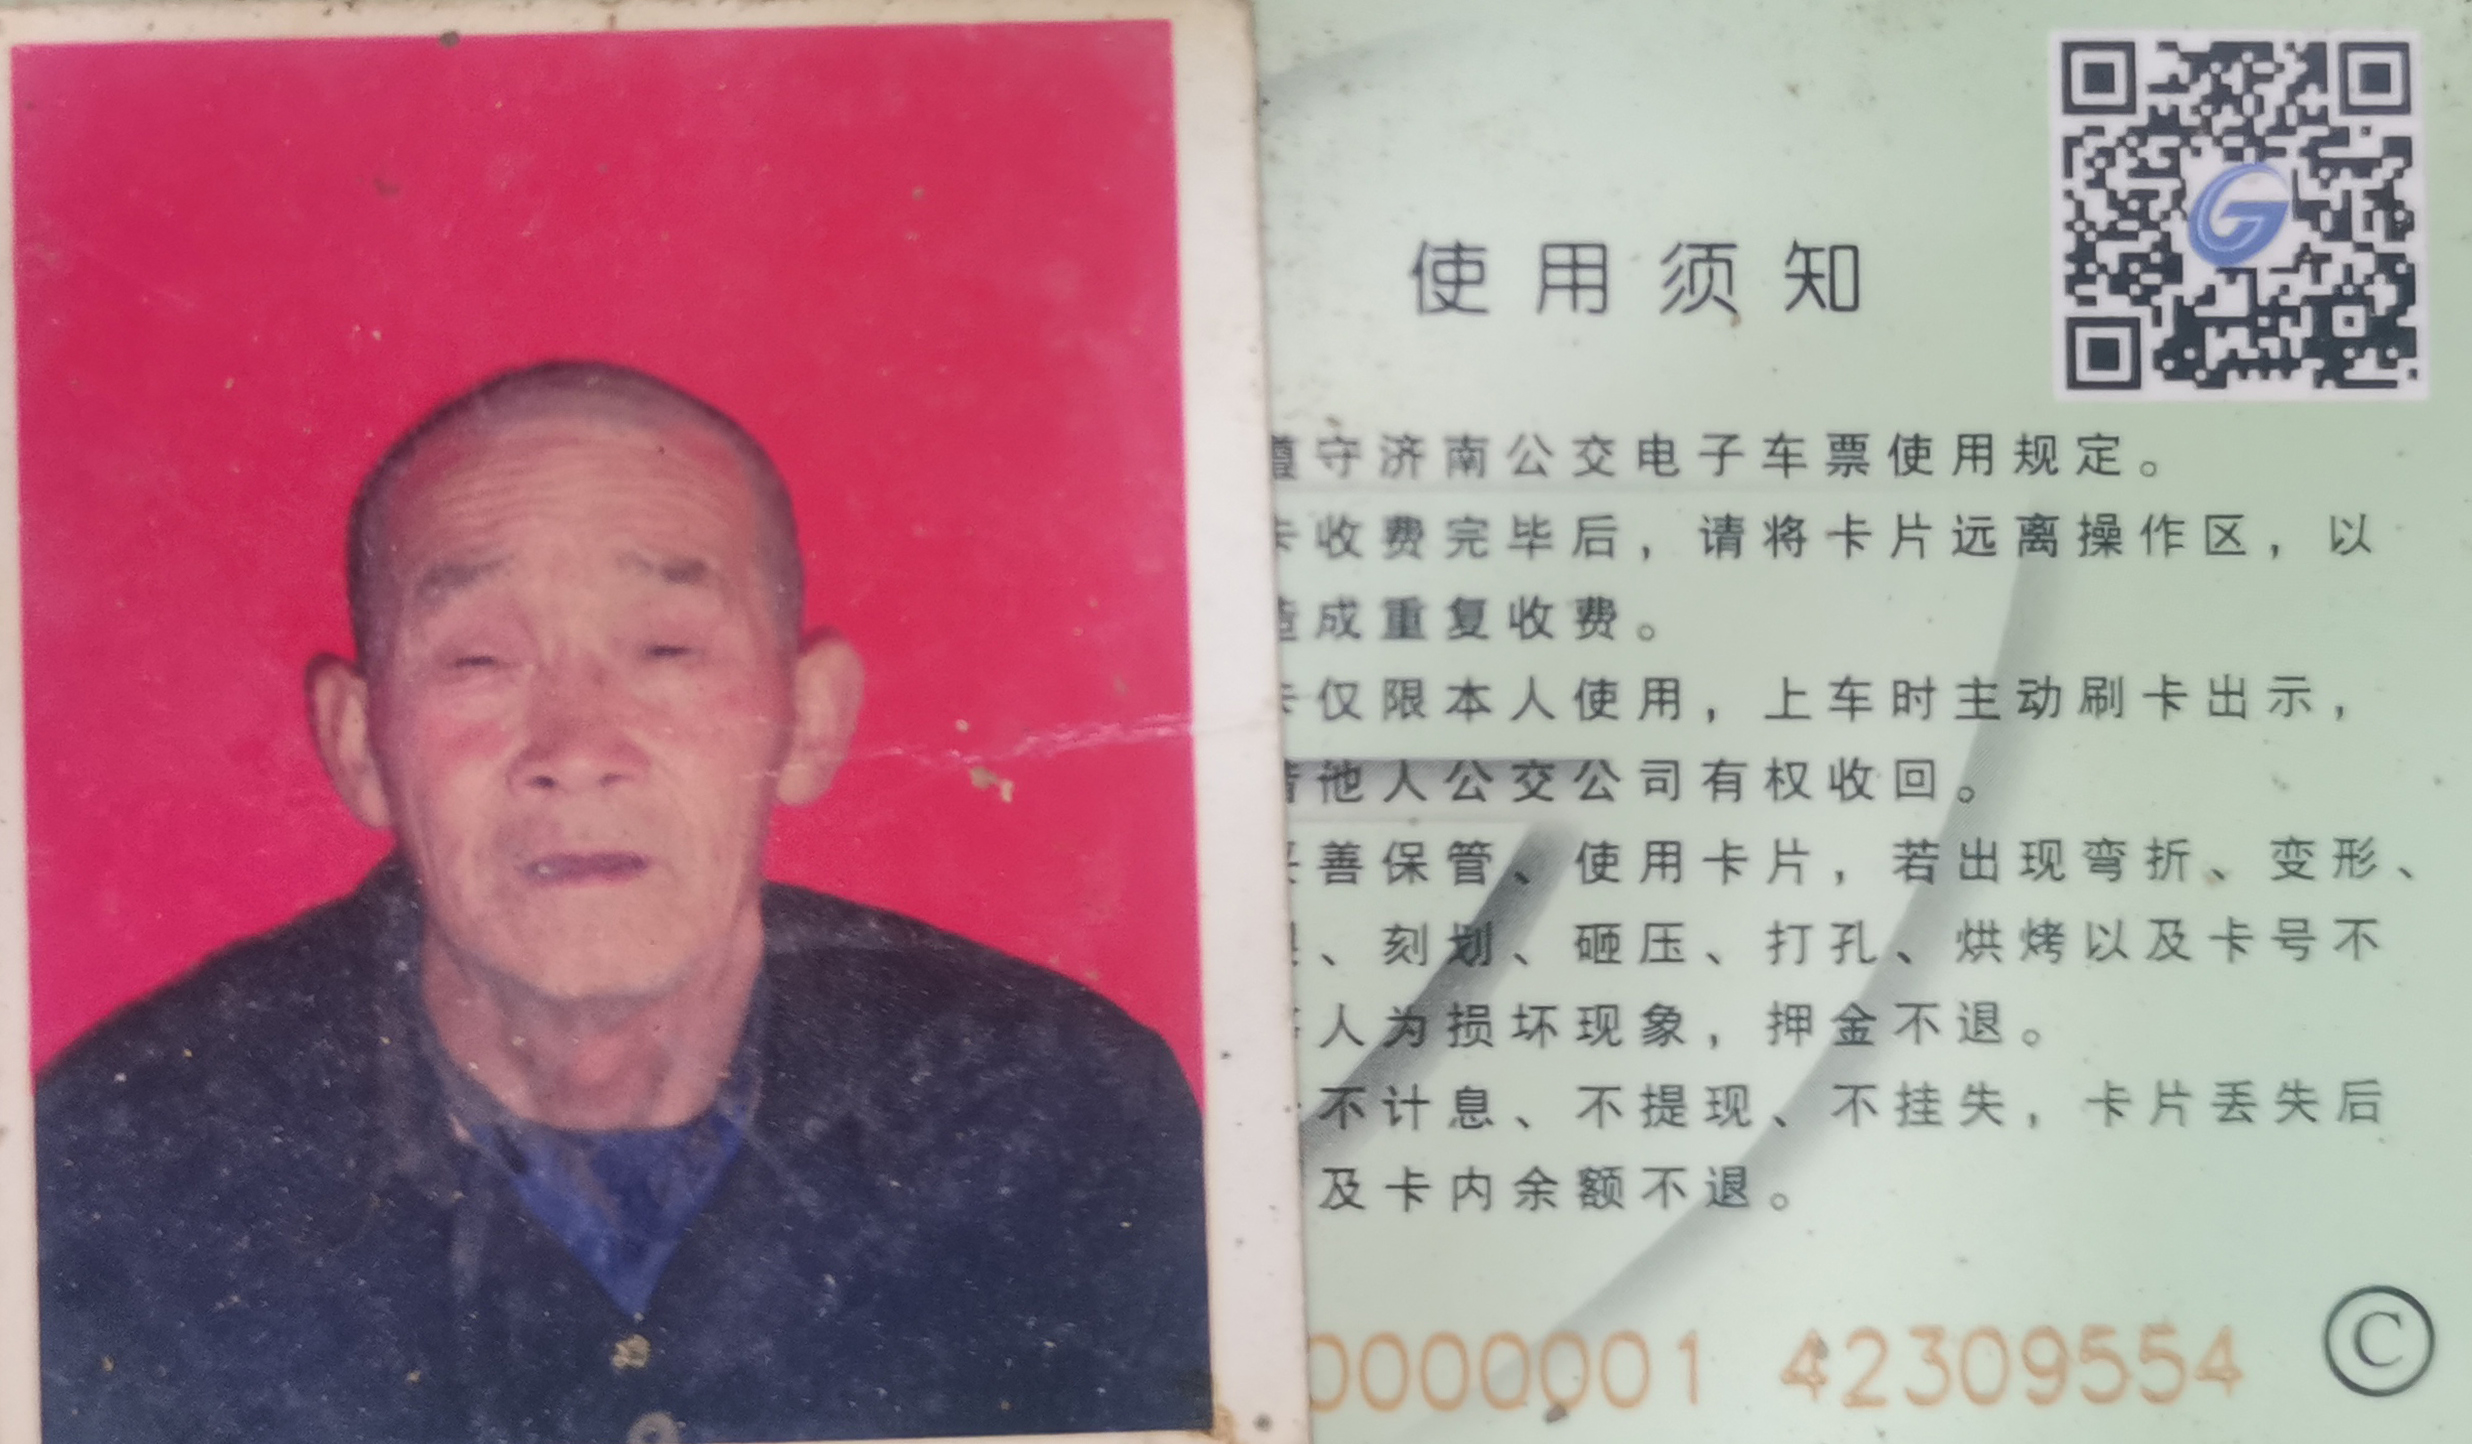 使用须知
遵守济南公交电子车票使用规定。
卡收费完毕后，请将卡片远离操作区，以
造成重复收费。
卡仅限本人使用，上车时主动刷卡出示，
借他人公交公司有权收回。
妥善保管、使用卡片，若出现弯折、变形、
、刻划、砸压、打孔、烘烤以及卡号不
人为损坏现象，押金不退。
不计息、不提现、不挂失，卡片丢失后
及卡内余额不退。
0000001 42309554
C